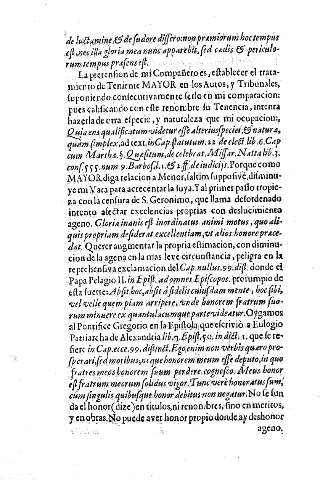 de luctamine, & de sudore dissero: non præmiorum hoc tempus
est, nec illa gloria mea nunc apparebit, sed cædis & periculo-
rum tempus præsens est.
La pretension de mi Compañero es, establecer el trata-
miento de Teniente MAYOR en los Autos, y Tribunales,
suponiendo consecutivamente serlo en mi comparacion:
pues calificando con este renombre su Tenencia, intenta
hazerla de otra especie, y naturaleza que mi ocupacion,
Quia ens qualificatum videtur esse alterius speciei, & naturæ,
quàm simplex, ad text. in Cap. statutum. 22 de elect. lib. 6. Cap
cum Marthæ. §. Quæsitum, de celebrat. Missar. Natta lib. 3.
cons. 555. num 9. Barbosa l. 1. & ff. de iudicijs. Porque como
MAYOR diga relacion a Menor, saltim suppositivè, disminu-
ye mi Vara para acrecentar la suya. Y al primer passo tropie-
za con la censura de S. Geronimo, que llama desordenado
intento afectar excelencias proprias con deslucimiento
ageno. Gloria inanis est inordinatus animi motus, quo ali-
quis propriam desiderat excellentiam, ut alios honore præce-
dat. Querer augmentar la propria estimacion, con diminu-
cion de la agena en la mas leve circunstancia, peligra en la
reprehensiva exclamacion del Cap. nullus. 99. dist. donde el
Papa Pelagio II. in Epist. ad omnes Episcopos. promumpio de
esta suerte: Absit hoc, absit à fidelis cuiusdam mente, hoc sibi,
vel velle quempiam arripere, unde honorem fratrum suo-
rum minuere ex quantulacumque parte videatur. Oygamos
al Pontifice Gregorio en la Epistola, que escrivió a Eulogio
Patriarcha de Alexandria lib. 7. Epist. 30. in dict. 1. que se re-
fiere in Cap. ecce. 99. distinct. Ego enim non verbis quæro pros-
perari, sed moribus, nec honorem meum esse deputo, in quo
fratres meos honorem suum perdere cognosco. Meus honor
est fratrum meorum solidus vigor. Tunc verè honoratus sum,
cum singulis quibusque honor debitus non negatur. No se fun-
da el honor (dize) en titulos, ni renombres, sino en meritos,
y en obras. No puede aver honor propio donde ay deshonor
ageno.